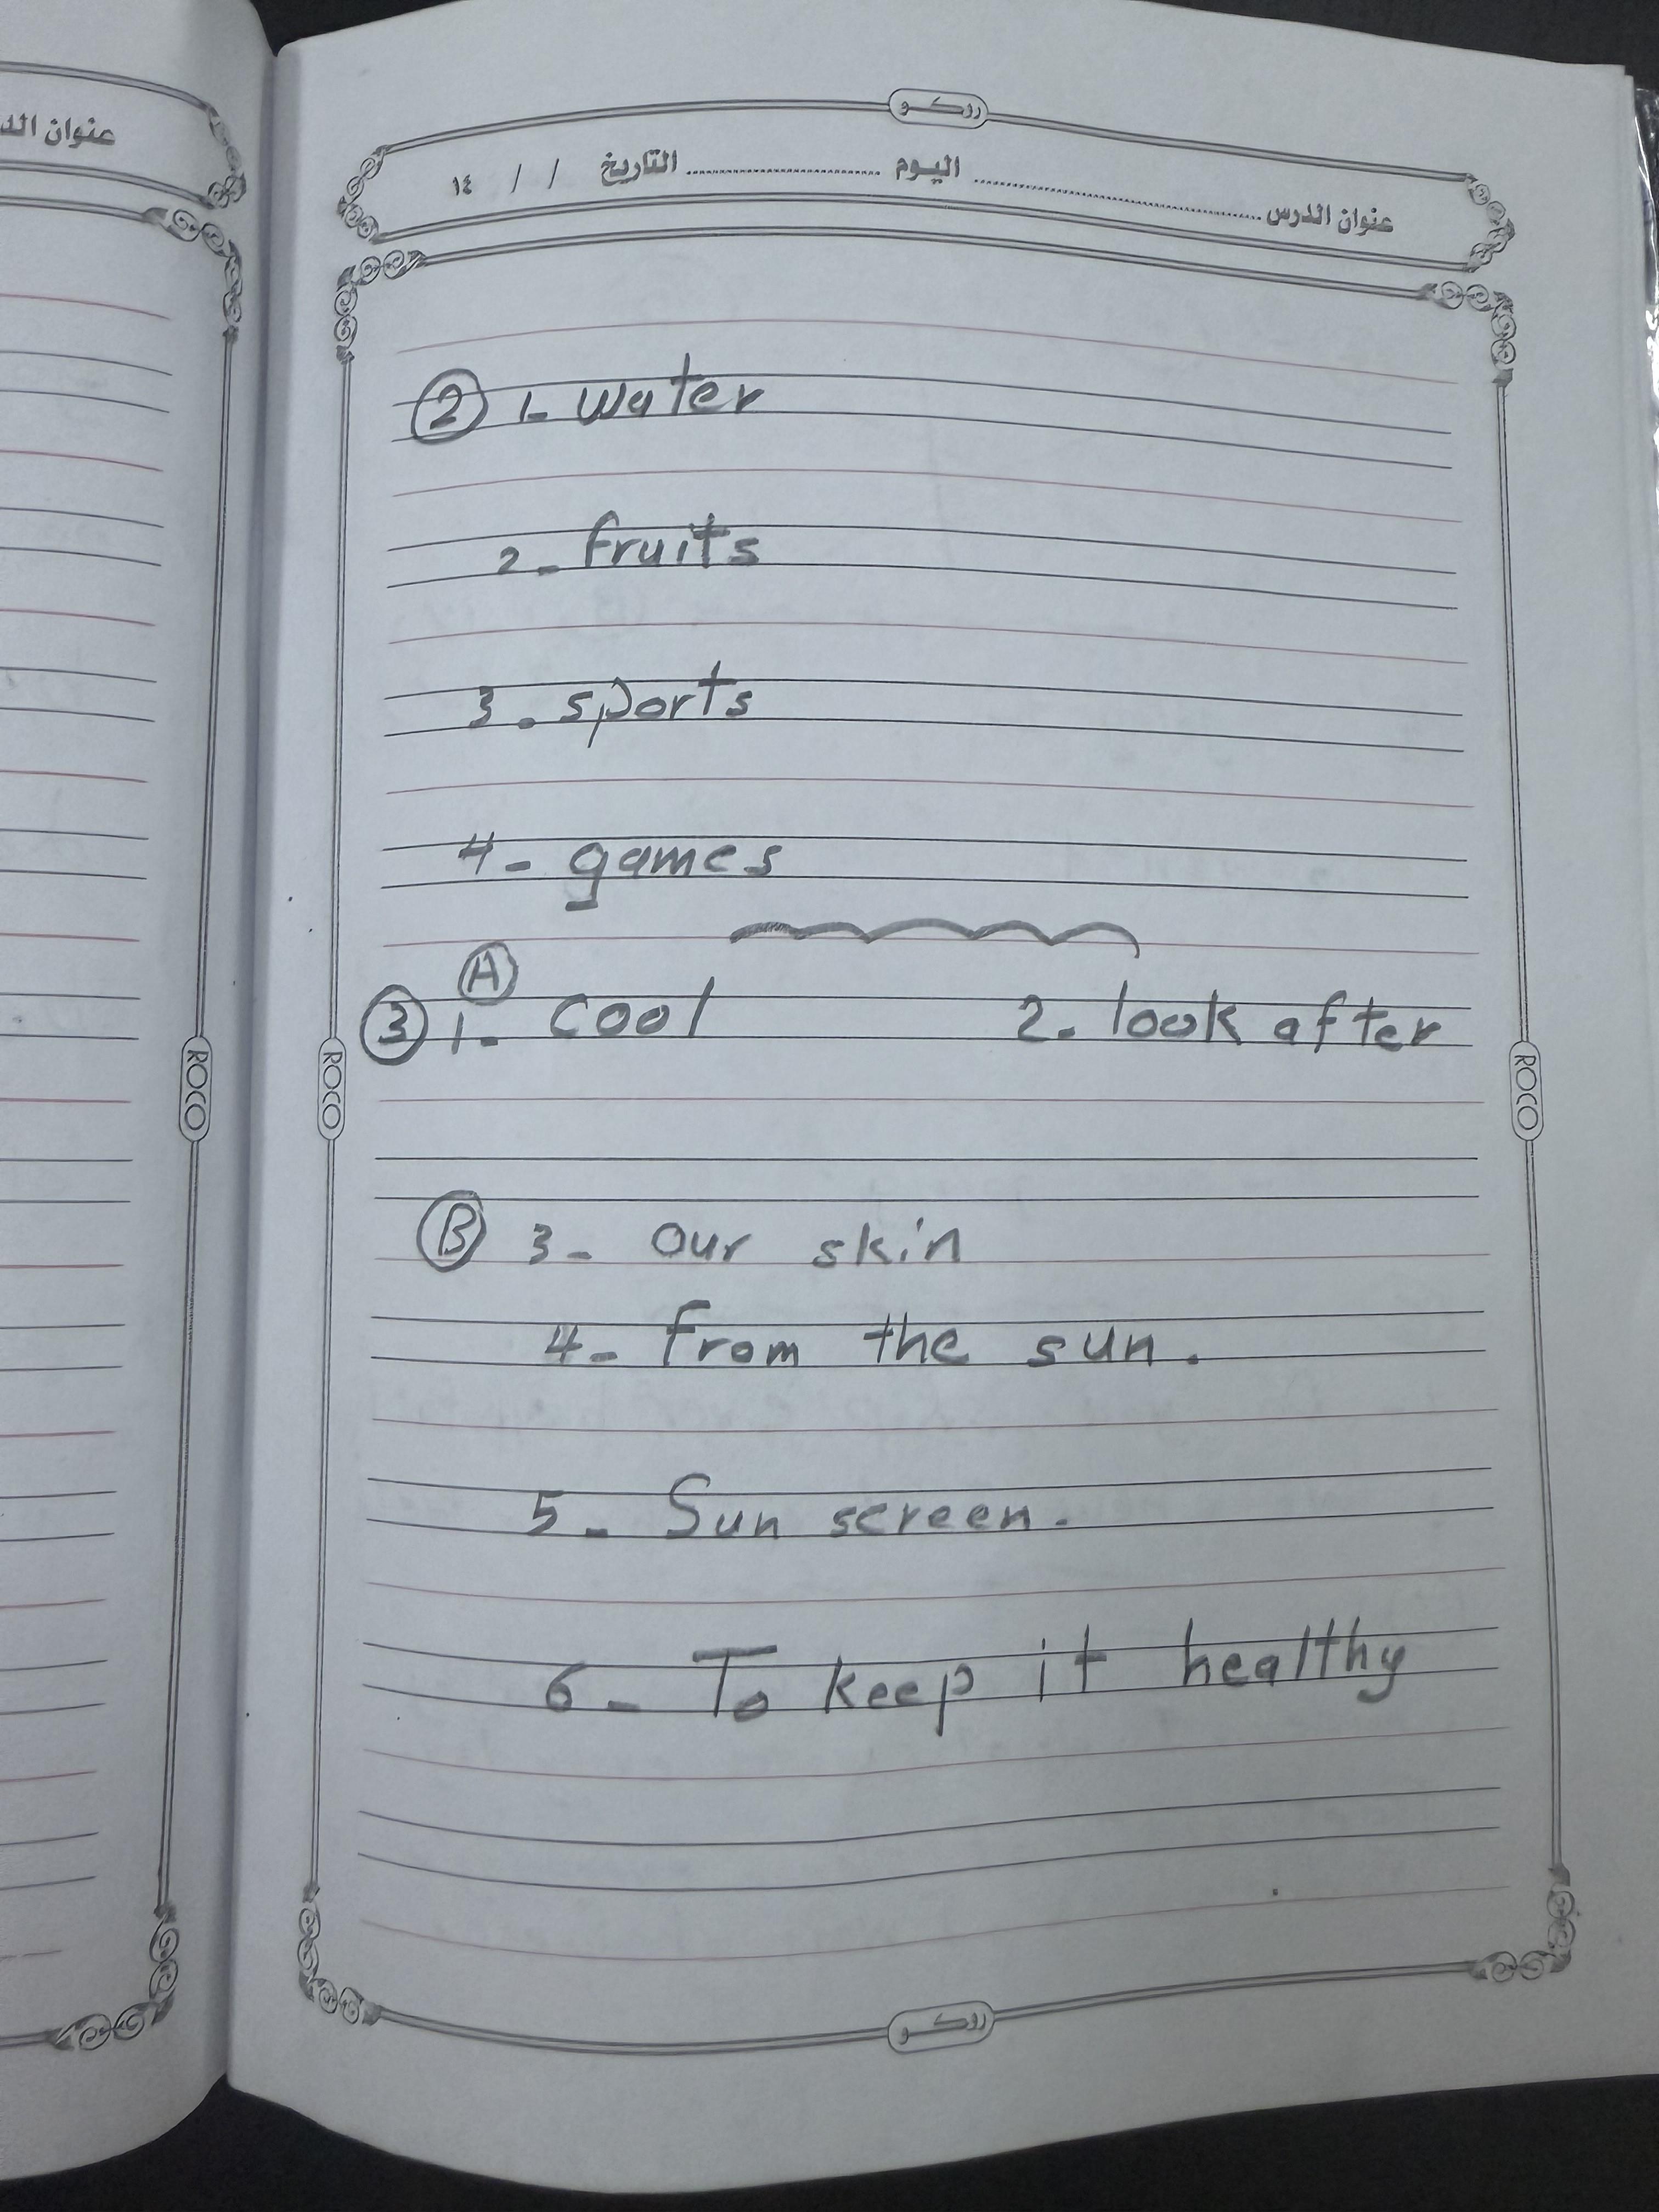 روكو
عنوان الدرس ........ اليوم ........ التاريخ / / ١٤
عنوان الد
② 1- Water
2- fruits
3- sports
4- games
Ⓐ
③ 1- Cool 2- look after
ROCO ROCO ROCO
Ⓑ 3- Our skin
4- from the sun.
5- Sun screen.
6- To keep it healthy
روكو